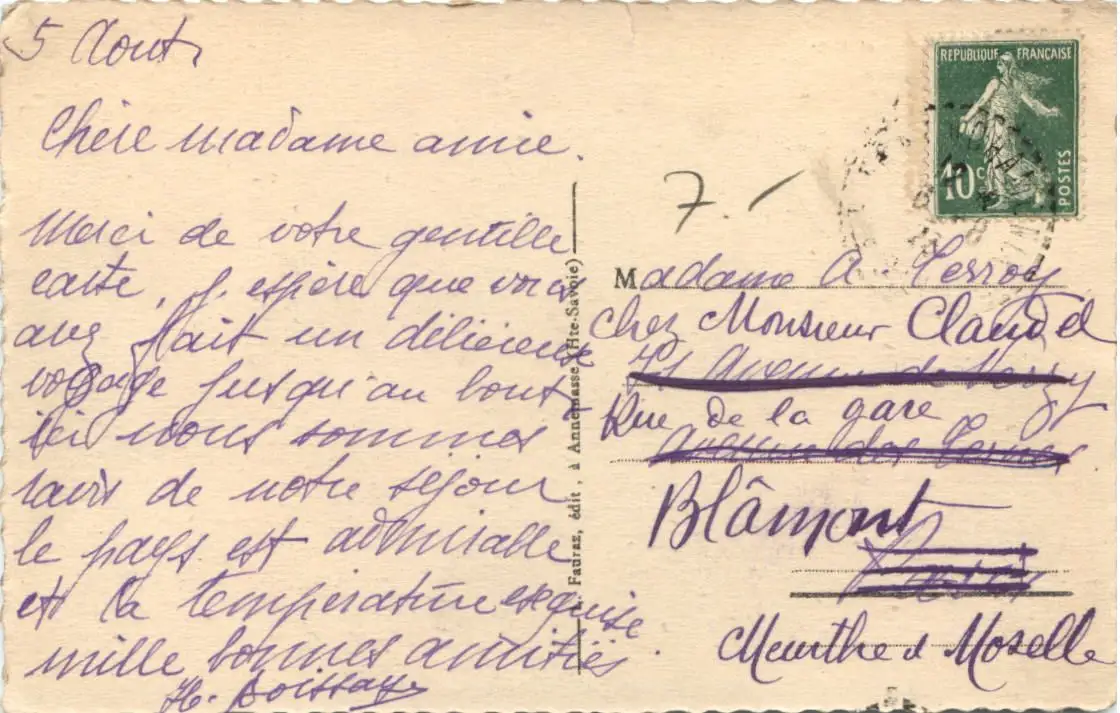 5 Aout
Chère madame amie.
Merci de votre gentille
carte, j. espère que vous
avez fait un délicieuse
voyage jusqu'au bout
ici nous sommes
ravis de notre séjour
le pays est admirable
et la température exquise
mille bonnes amitiés.
H. Boissay
Fauraz, édit, à Annemasse (Hte-Savoie)
7.-
REPUBLIQUE FRANÇAISE
10c
POSTES
Madame A Terroy
chez Monsieur Claudel
Avenue de
Rue de la gare
Avenue des Ternes
Blâmont
Paris
Meurthe et Moselle